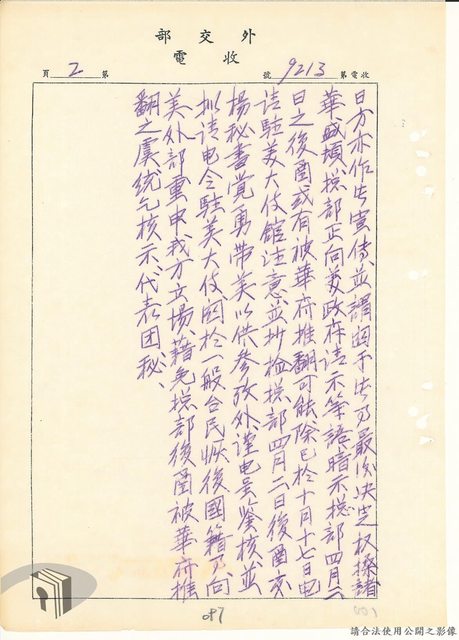 外交部
收電
收電第9213號
第2頁
日方亦作此宣傳、並謂關于此乃最後決定权操諸
華盛頓、㧾部正向美政府請示等語、暗示㧾部四月二
日之後函或有被華府推翻可能、除已於十月十七日电
請駐美大使館注意、並抄檢㧾部四月二日後函交
楊秘書覺勇帶美以供參攷外、謹电呈鑒核、並
拟請电令駐美大使關於一般台民恢後國籍乃向
美外部重申我方立場、藉免㧾部後函被華府推
翻之虞、統乞核示、代表团秘、
087
請合法使用公開之影像